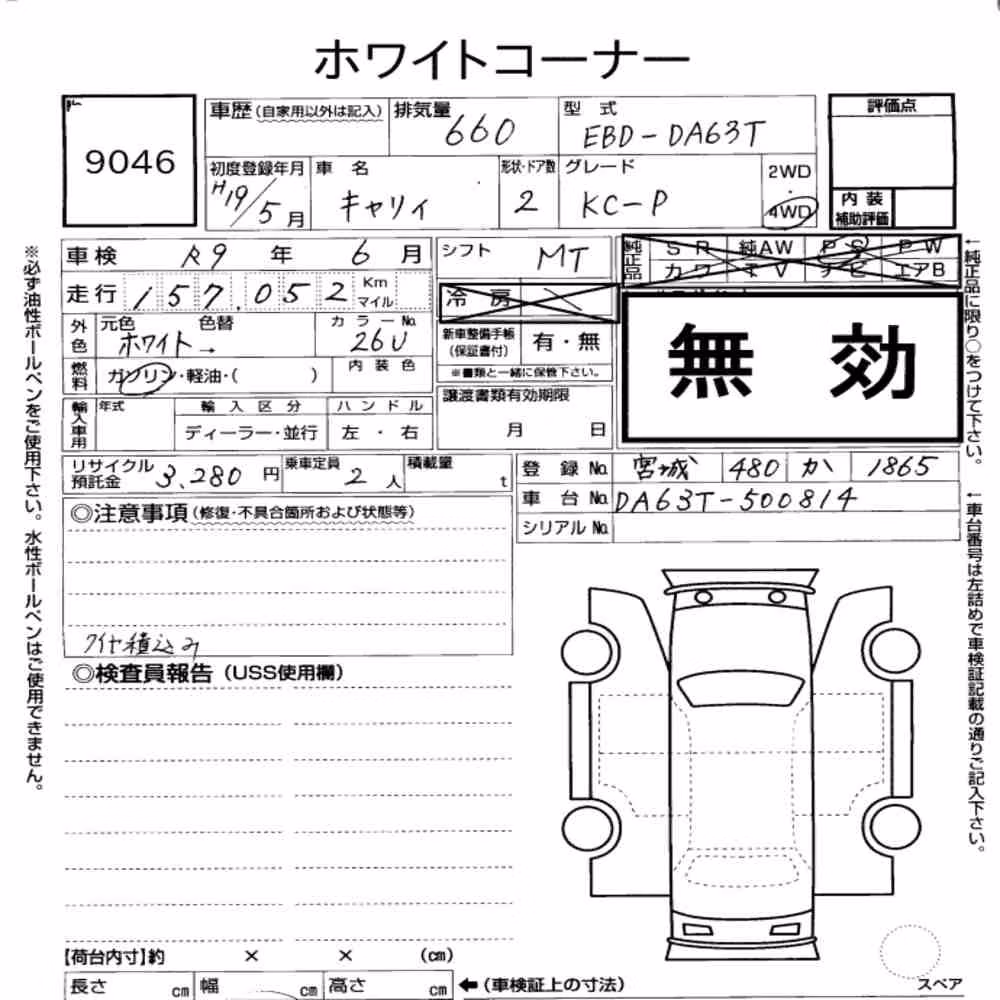 ホワイトコーナー
9046
車歴(自家用以外は記入)
排気量 660
型式 EBD-DA63T
評価点
初度登録年月 H19/5月
車名 キャリィ
形状・ドア数 2
グレード KC-P
2WD
4WD
内装
補助評価
車検 R9年 6月
シフト MT
純正品
SR 純AW PS PW
カワ TV ナビ エアB
走行 157,052 Km
マイル
冷房
外色 元色 ホワイト → 色替
カラーNo. 26U
新車整備手帳
(保証書付)
有・無
※書類と一緒に保管下さい。
無効
燃料 ガソリン・軽油・( )
内装色
譲渡書類有効期限
月 日
輸入車用 年式
輸入区分
ディーラー・並行
ハンドル
左・右
リサイクル
預託金 3,280円
乗車定員 2人
積載量 t
登録No. 宮城 480 か 1865
車台No. DA63T-500814
シリアルNo.
◎注意事項(修復・不具合箇所および状態等)
タイヤ積込み
◎検査員報告(USS使用欄)
【荷台内寸】約 × × (cm)
長さ cm 幅 cm 高さ cm ←(車検証上の寸法)
スペア
※必ず油性ボールペンをご使用下さい。水性ボールペンはご使用できません。
←純正品に限り○をつけて下さい。
←車台番号は左詰めで車検証記載の通りご記入下さい。